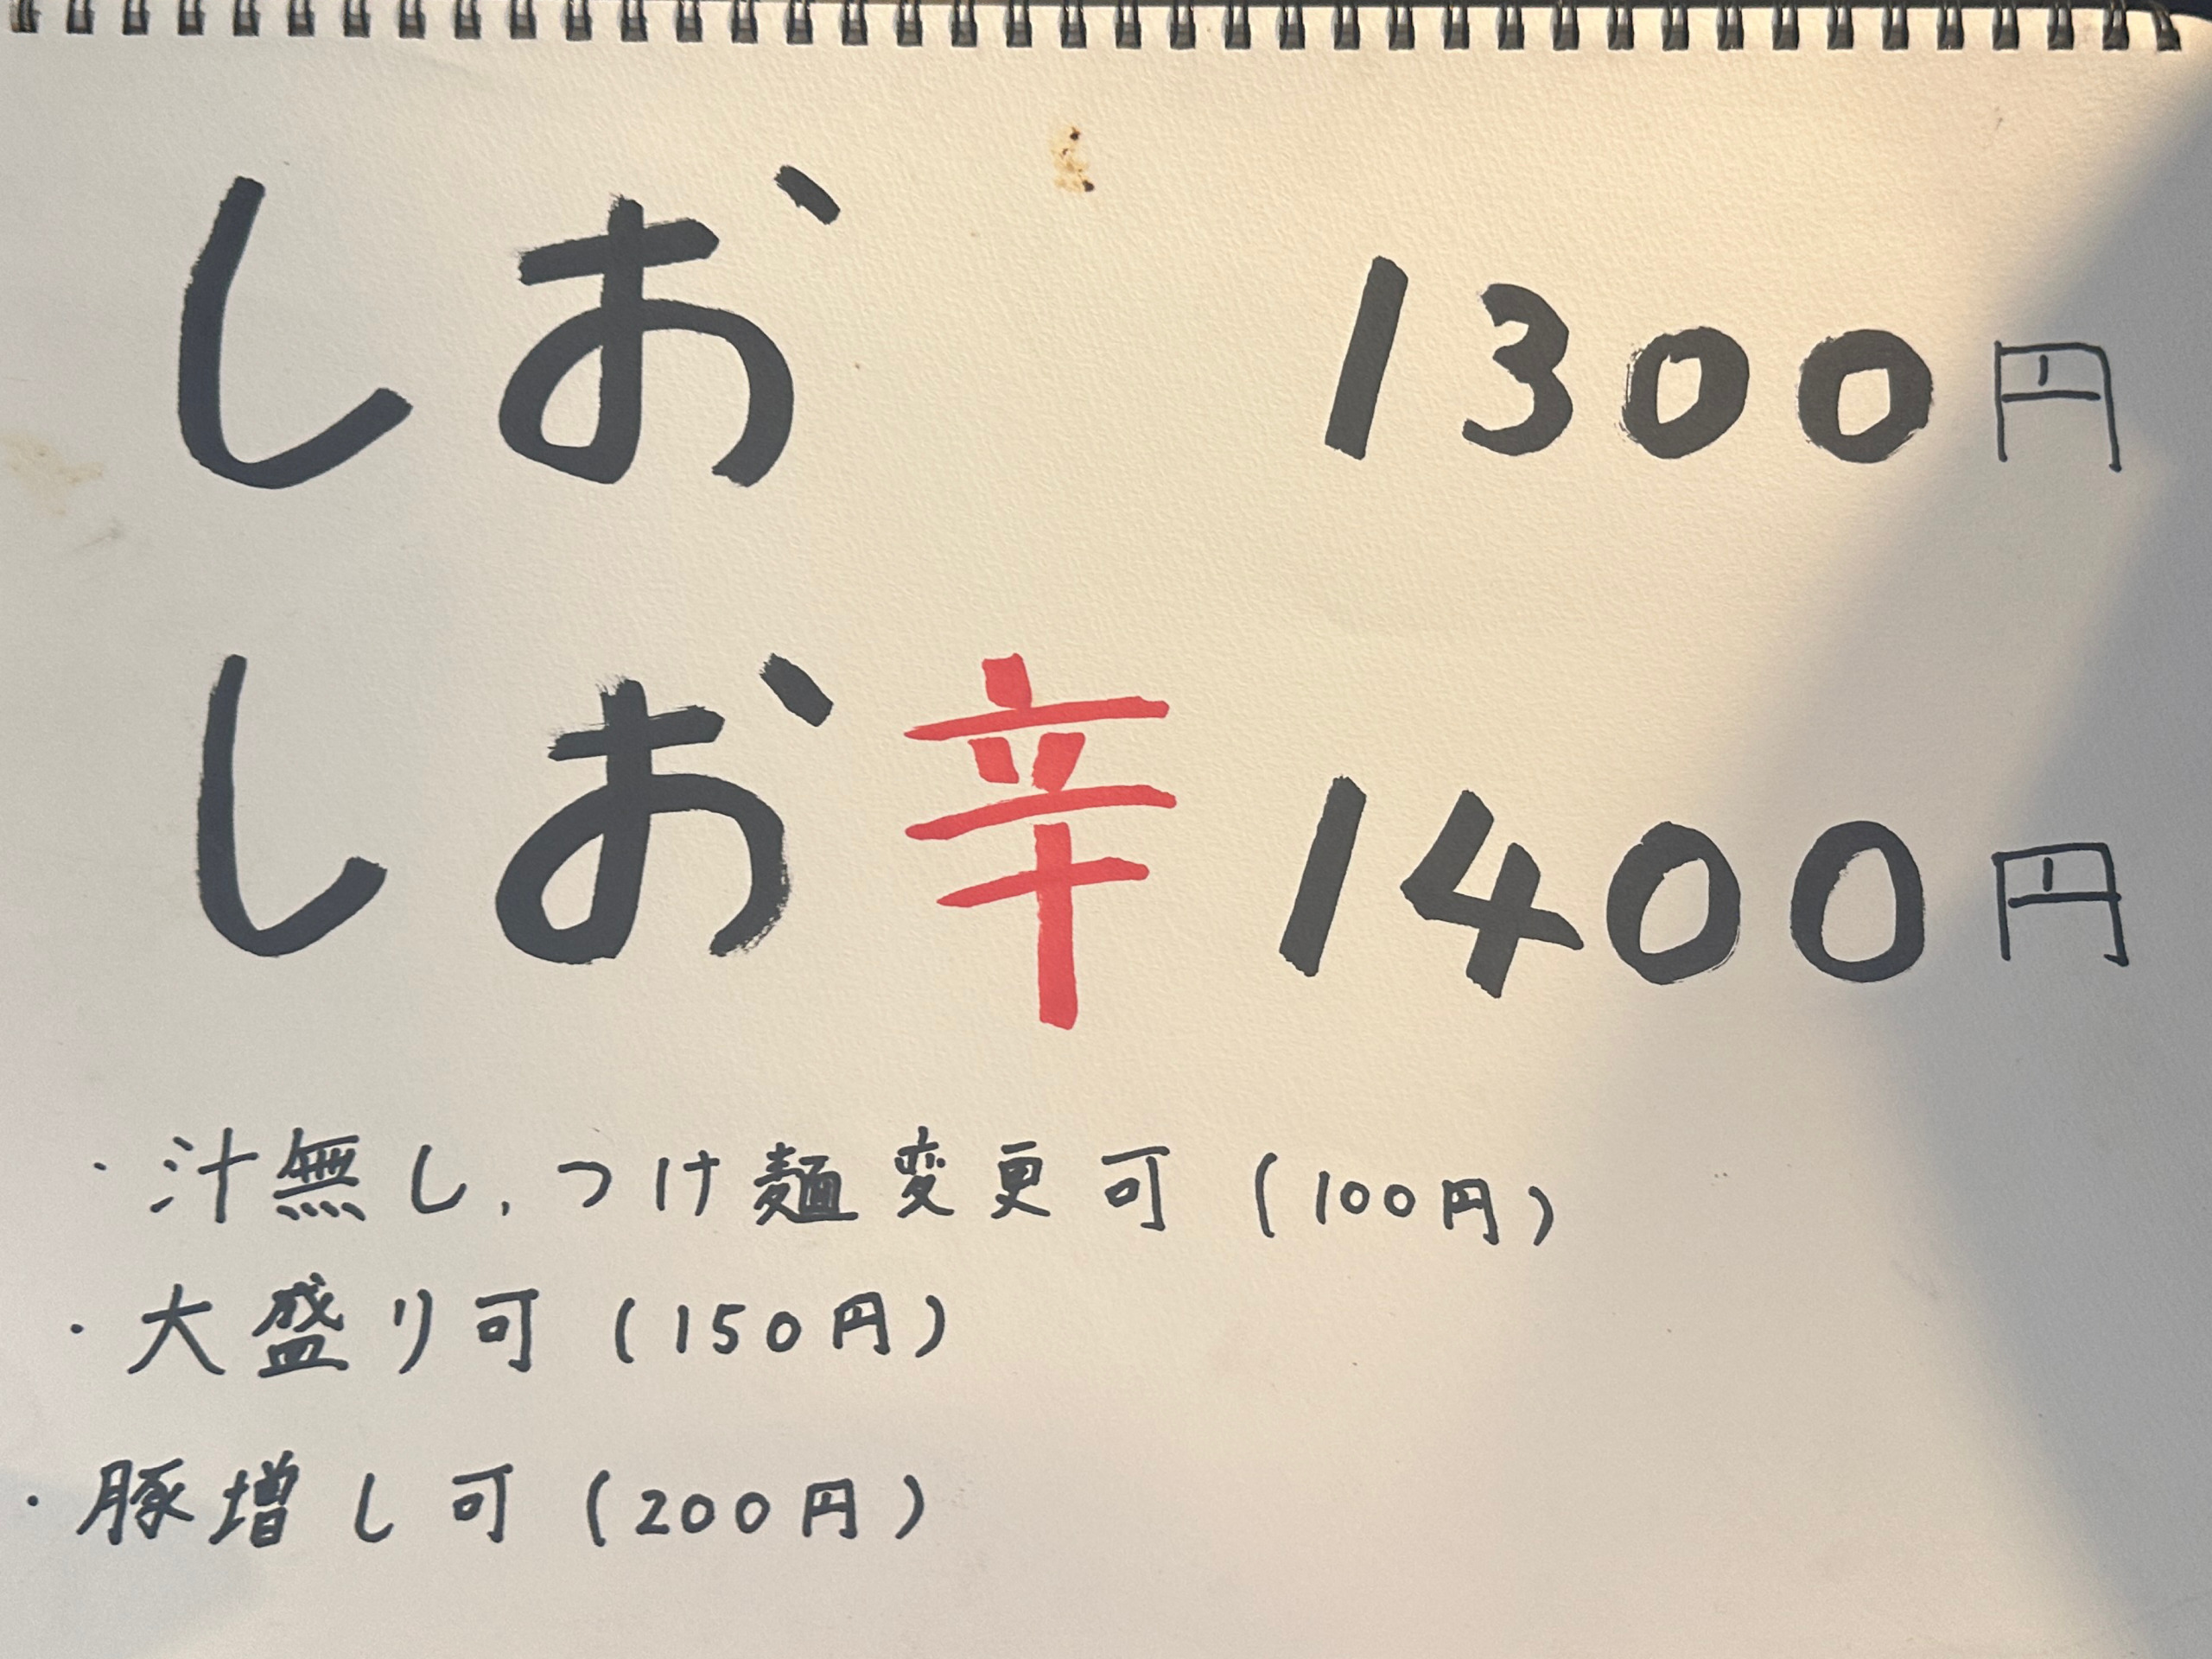 しお 1300円
しお辛 1400円
・汁無し、つけ麺変更可(100円)
・大盛り可(150円)
・豚増し可(200円)